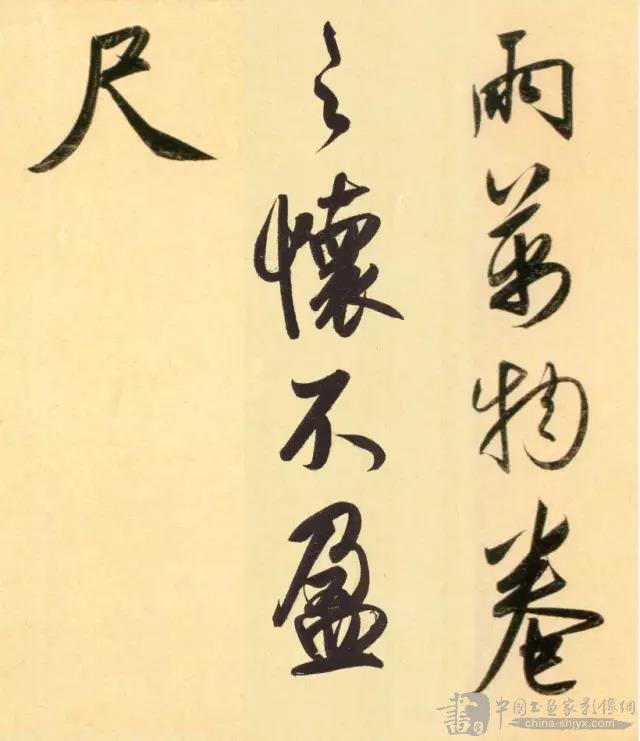 雨萬物卷
之懷不盈
尺
書 中国书画家影像網
china-shjyx.com